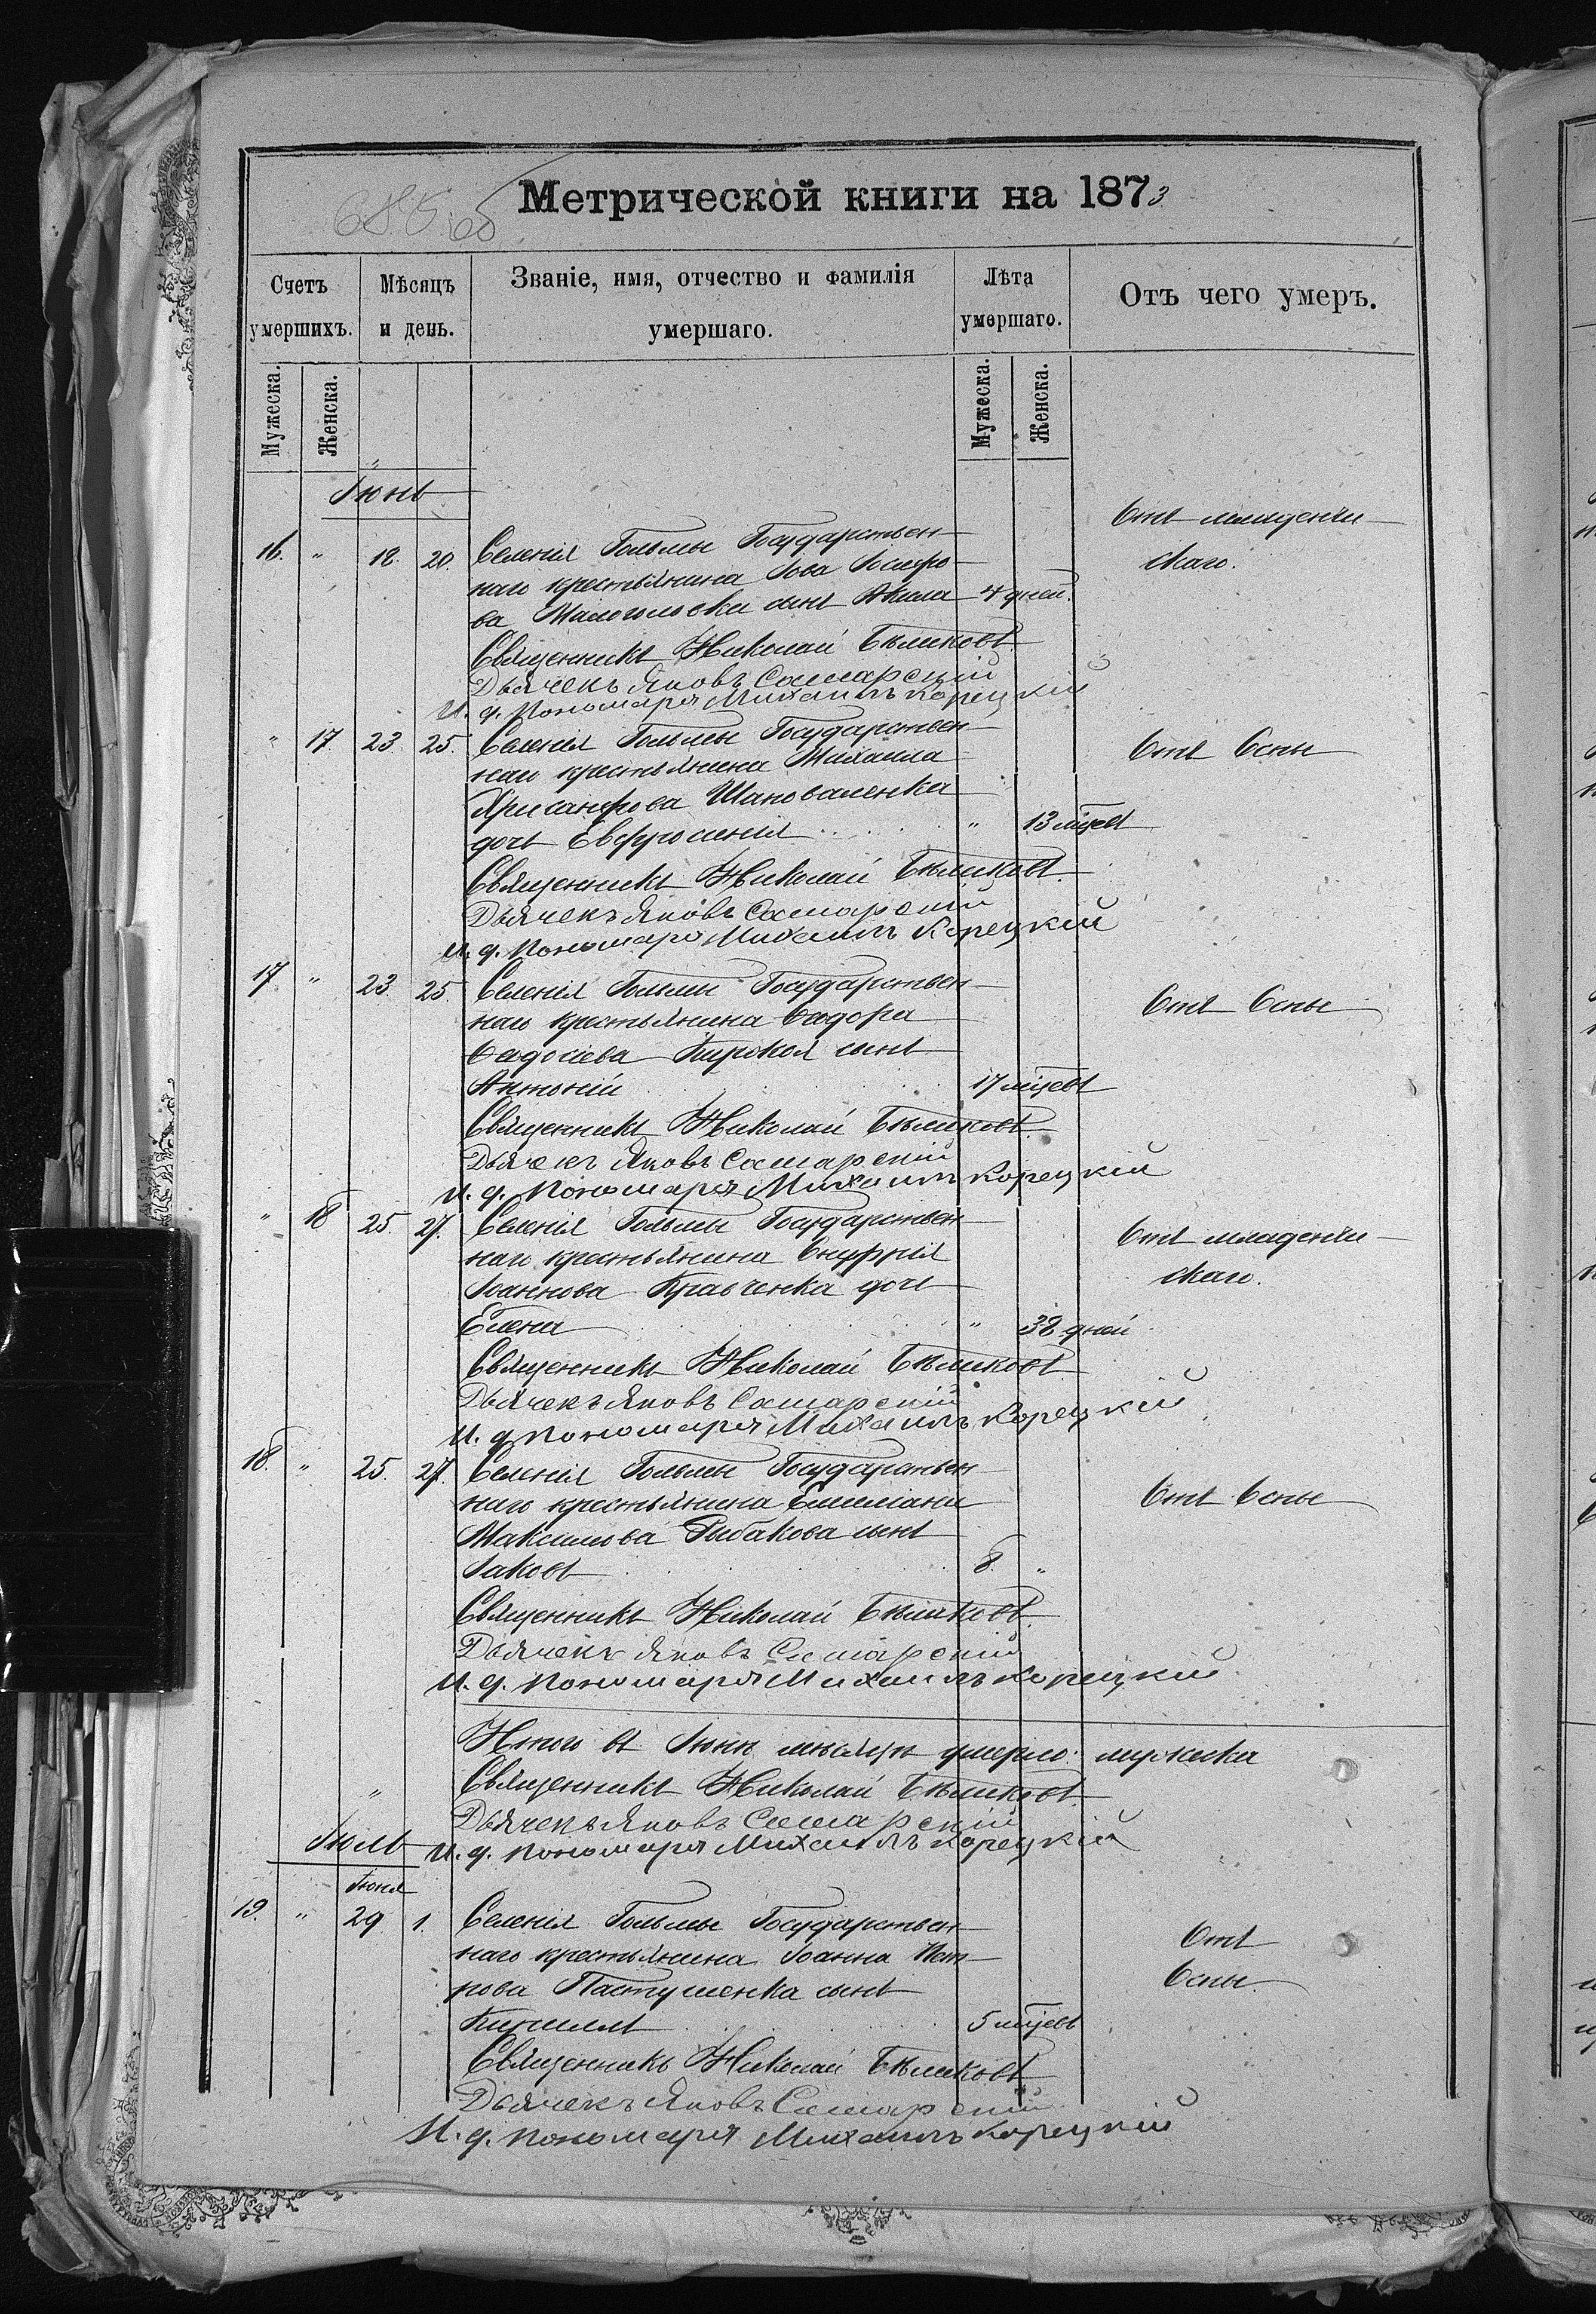 Метрической книги на 1873
Счетъ умершихъ.
Мѣсяцъ и день.
Званіе, имя, отчество и фамилія умершаго.
Лѣта умершаго.
Отъ чего умеръ.
Мужеска.
Женска.
Мужеска.
Женска.
Іюнь
16. " 18. 20. Селенія Гольмы Государствен-
Отъ младенче-
наго крестьянина Іова Іосифо-
скаго.
ва сынъ Акила 4 дней.
Священникъ Николай Бѣликовъ.
Дьячекъ Яковъ Самарскій
И. д. Пономаря Михаилъ Корецкій
" 17 23 25. Селенія Гольмы Государствен-
Отъ Оспы
наго крестьянина Михаила
Хрисанфова Шаповаленка
дочь Евфросинія " 13 мѣсяцевъ
Священникъ Николай Бѣликовъ.
Дьячекъ Яковъ Самарскій
И. д. Пономаря Михаилъ Корецкій
17. " 23. 25. Селенія Гольмы Государствен-
Отъ Оспы
наго крестьянина Ѳеодора
Ѳеодосіева сынъ
Антоній 17 мѣсяцевъ
Священникъ Николай Бѣликовъ.
Дьячекъ Яковъ Самарскій
И. д. Пономаря Михаилъ Корецкій
" 18 25. 27. Селенія Гольмы Государствен-
Отъ младенче-
наго крестьянина Онуфрія
скаго.
Іоаннова Кравченка дочь
Елена " 38 дней
Священникъ Николай Бѣликовъ
Дьячекъ Яковъ Самарскій
И. д. Пономаря Михаилъ Корецкій
18. " 25. 27. Селенія Гольмы Государствен-
наго крестьянина Емеліана
Отъ Оспы
Максимова Рыбакова сынъ
Іаковъ 8. "
Священникъ Николай Бѣликовъ.
Дьячекъ Яковъ Самарскій
И. д. Пономаря Михаилъ Корецкій
Итого въ Іюнѣ мѣсяцѣ умерло: мужеска
Священникъ Николай Бѣликовъ.
Дьячекъ Яковъ Самарскій
Іюль
И. д. Пономаря Михаилъ Корецкій
Іюня
19. " 29 1. Селенія Гольмы Государствен-
Отъ
наго крестьянина Іоанна Пет-
Оспы.
рова Пастушенка сынъ
Кириллъ 5 мѣсяцевъ
Священникъ Николай Бѣликовъ
Дьячекъ Яковъ Самарскій
И. д. Пономаря Михаилъ Корецкій